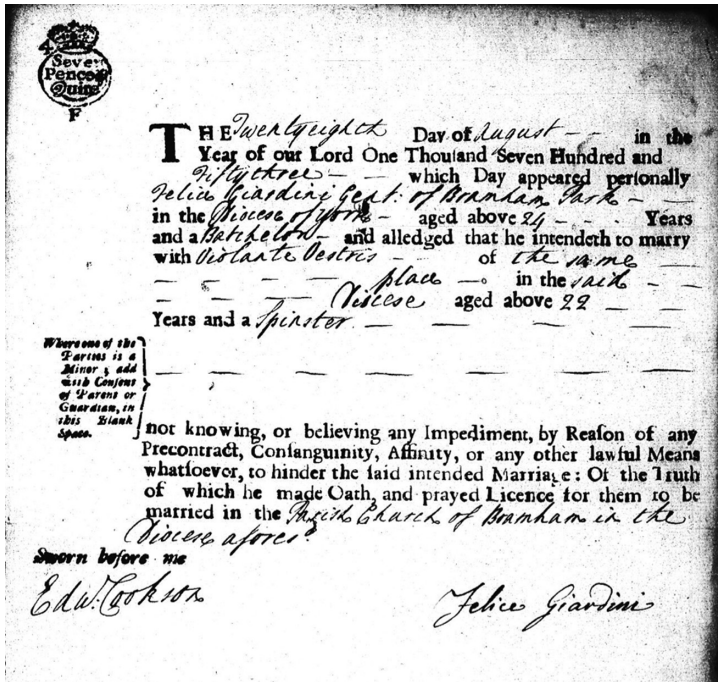 4
Seven
Pence p
Quire
F
THE Twentyeighth Day of August - - in the
Year of our Lord One Thouſand Seven Hundred and
Fiftythree - - which Day appeared perſonally
Felice Giardini Gent: of Bramham Park - - -
in the Dioceſe of York - aged above 24 - - - Years
and a Batchelor - and alledged that he intendeth to marry
with Violante Vestris - - of the same - -
- - - - place - - in the said -
- - - Dioceſe aged above 22 - -
Years and a Spinster - - - - - -
Where one of the
Parties is a
Minor; add
with Conſent
of Parent or
Guardian, in
this Blank
Space.
- - - - - - - -
not knowing, or believing any Impediment, by Reaſon of any
Precontract, Conſanguinity, Affinity, or any other lawful Means
whatſoever, to hinder the ſaid intended Marriage: Of the Truth
of which he made Oath, and prayed Licence for them to be
married in the Parish Church of Bramham in the
Dioceſe aforesd
Sworn before me
Edw. Cookson
Felice Giardini